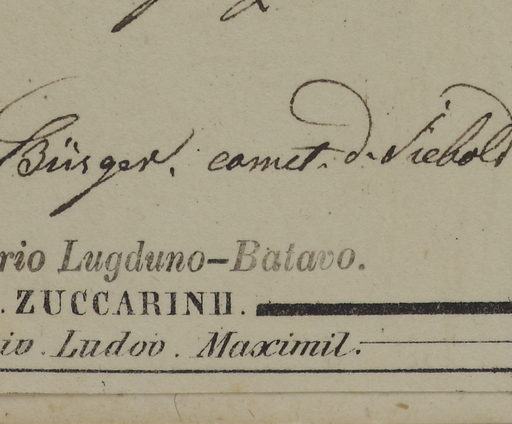 Bürger. comet. d. Siebold
rio Lugduno-Batavo.
. ZUCCARINII.
iv. Ludov. Maximil.